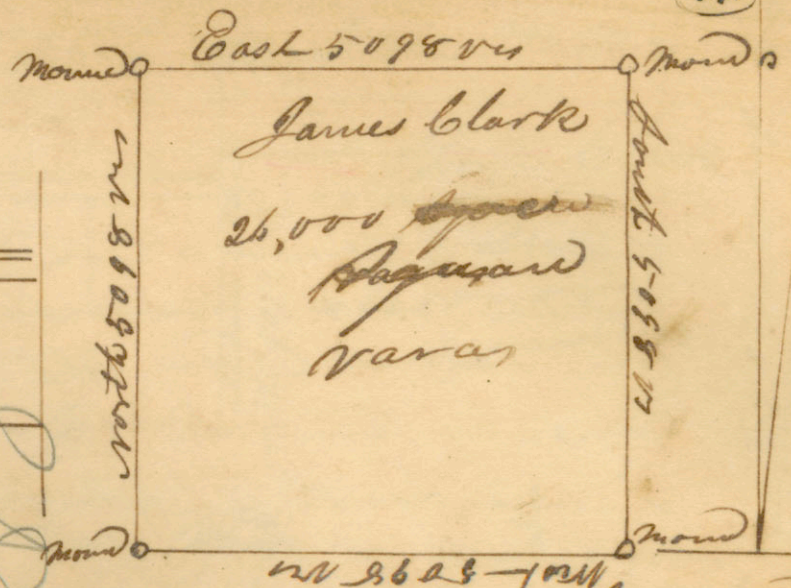 East 5098 vrs
Mound
Mound
James Clark
26,000
Square
varas
North 5098 vrs
South 5098 vrs
Mound
Mound
West 5098 vrs